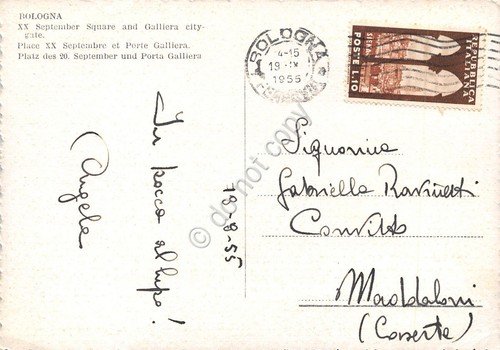 BOLOGNA
XX September Square and Galliera city-
gate.
Place XX Septembre et Porte Galliera.
Platz des 20. September und Porta Galliera
BOLOGNA
4-15
19-IX
1955
FERROVIA
REPUBBLICA
ITALIANA
POSTE L.10
In bocca al lupo!
Angela
19-9-55
Signorina
Gabriella
Convitto
Maddaloni
(Caserta)
do not copy